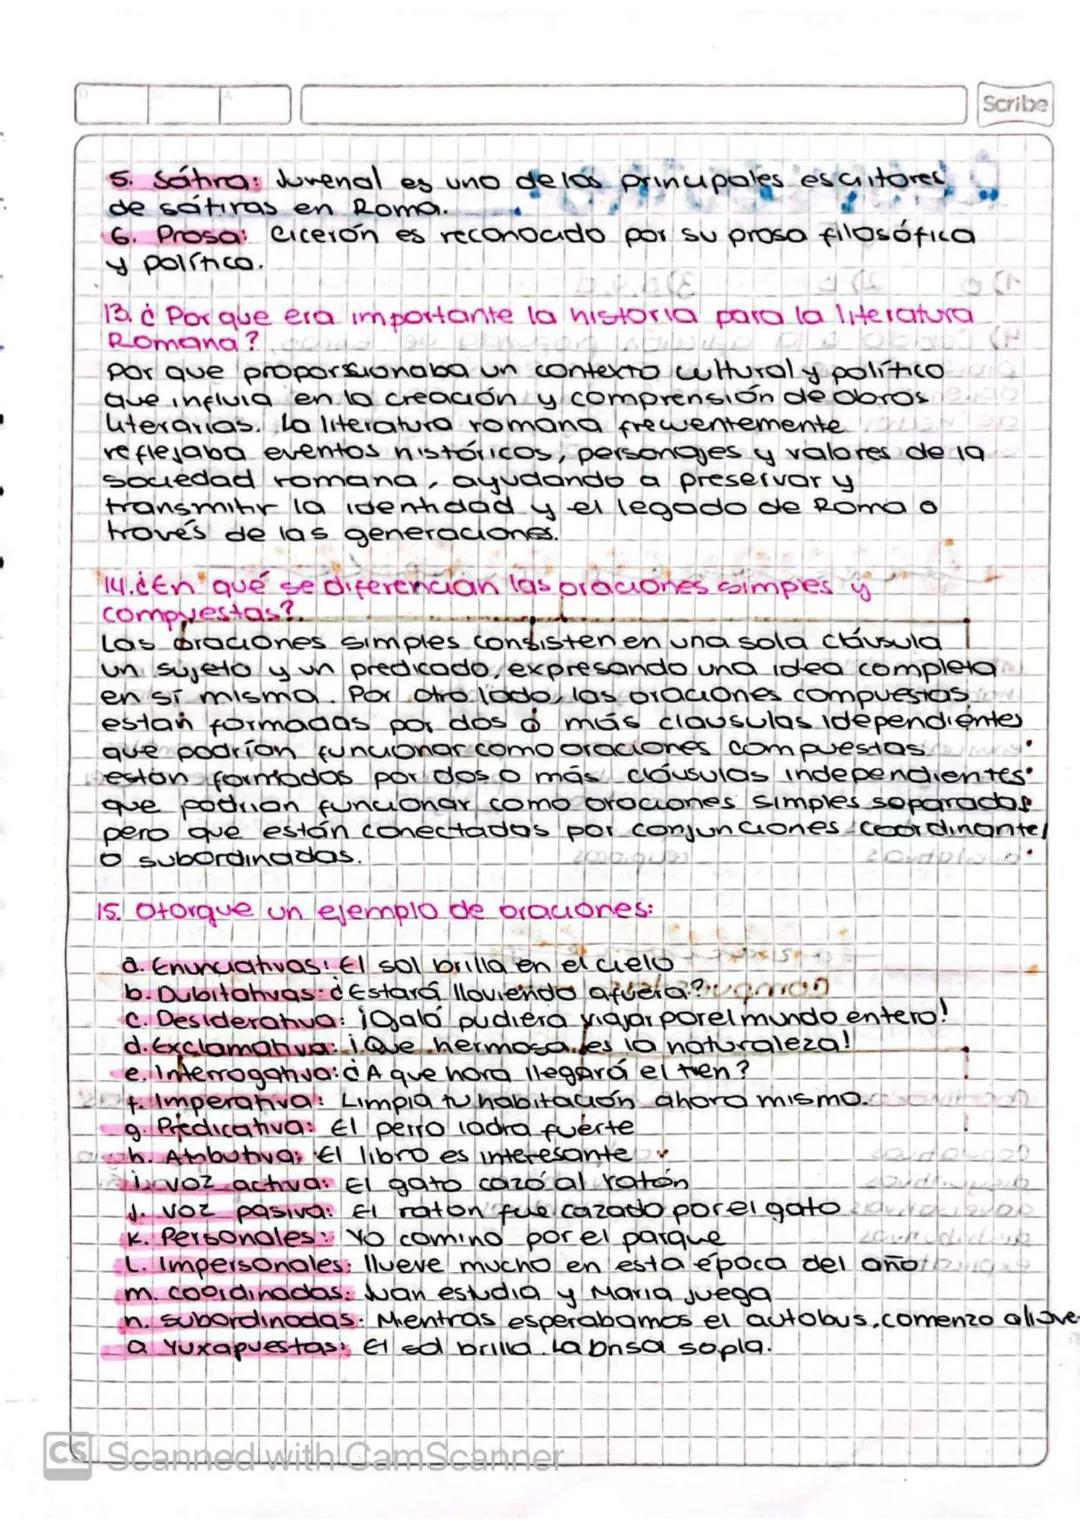 Scribe
5. Sátira: Juvenal es uno de los principales escritores
de sátiras en Roma.
6. Prosa: Cicerón es reconocido por su prosa filosófica
y política.
13. ¿Por que era importante la historia para la literatura
Romana?
Por que proporsionaba un contexto cultural y político
que influia en la creación y comprensión de obras
literarias. La literatura romana frecuentemente
reflejaba eventos históricos, personajes y valores de la
sociedad romana, ayudando a preservar y
transmitir la identidad y el legado de Roma a
través de las generaciones.
14. ¿En qué se diferencian las oraciones simples y
compuestas?
Las oraciones simples consisten en una sola cláusula
un sujeto y un predicado, expresando una idea completa
en sí misma. Por otro lado, las oraciones compuestas
están formadas por dos o más clausulas idependientes
que podrían funcionar como oraciones compuestas
están formadas por dos o más cláusulas independientes
que podrian funcionar como oraciones simples separadas
pero que están conectadas por conjunciones coordinantes
o subordinadas.
15. Otorgue un ejemplo de oraciones:
a. Enunciativas: El sol brilla en el cielo
b. Dubitativas: ¿Estará lloviendo afuera?
c. Desiderativa: ¡Ojalá pudiera viajar por el mundo entero!
d. Exclamativa: ¡Que hermosa es la naturaleza!
e. Interrogativa: ¿A que hora llegará el tren?
f. Imperativa: Limpia tu habitación ahora mismo.
g. Predicativa: El perro ladra fuerte
h. Atributiva: El libro es interesante
i. voz activa: El gato cazó al ratón
j. voz pasiva: El raton fue cazado por el gato
k. Personales: Yo camino por el parque
L. Impersonales: llueve mucho en esta época del año
m. coordinadas: Juan estudia y Maria juega
n. subordinadas: Mientras esperabamos el autobus, comenzo a llove
a Yuxapuestas: El sol brilla. La brisa sopla.
CS Scanned with CamScanner